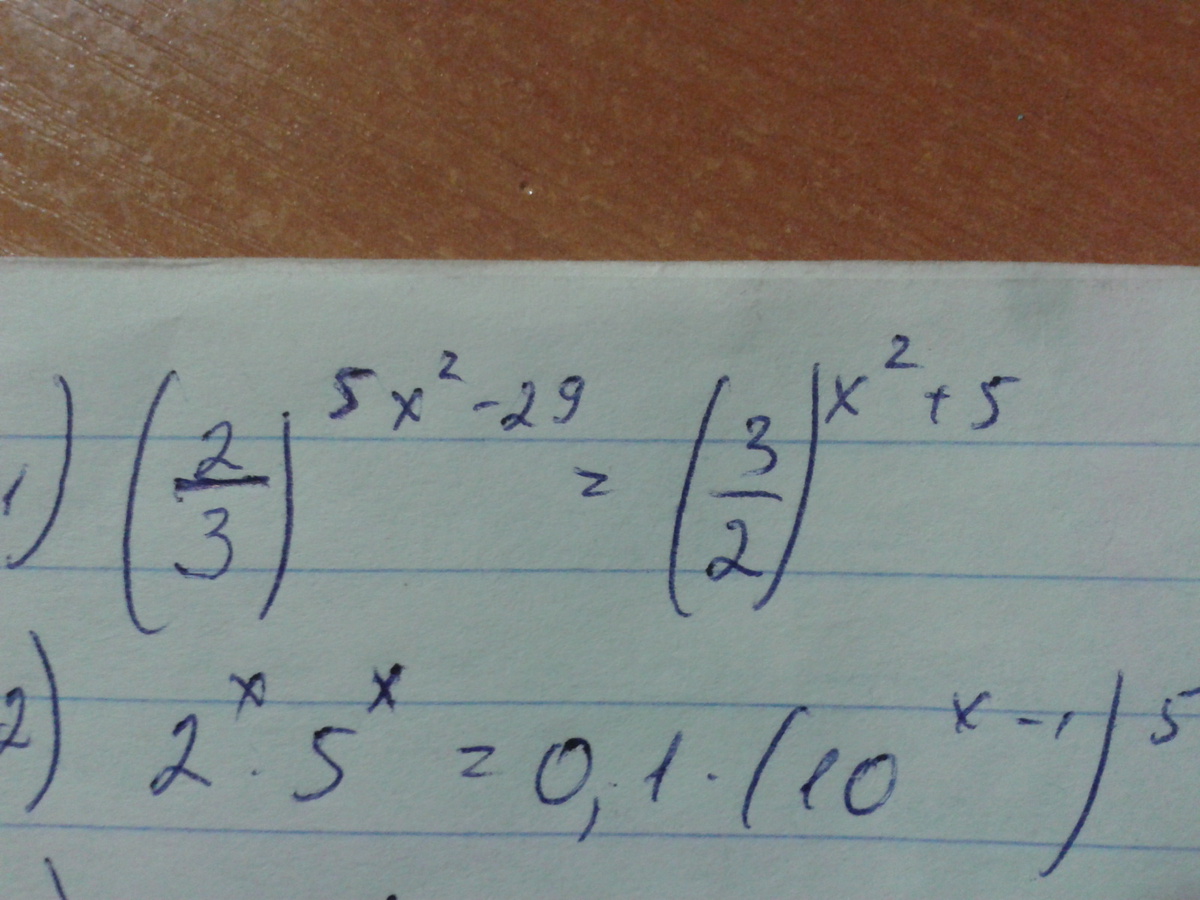 1) (2/3)^(5x²-29) = (3/2)^(x²+5)
2) 2^x · 5^x = 0,1 · (10^(x-1))^5